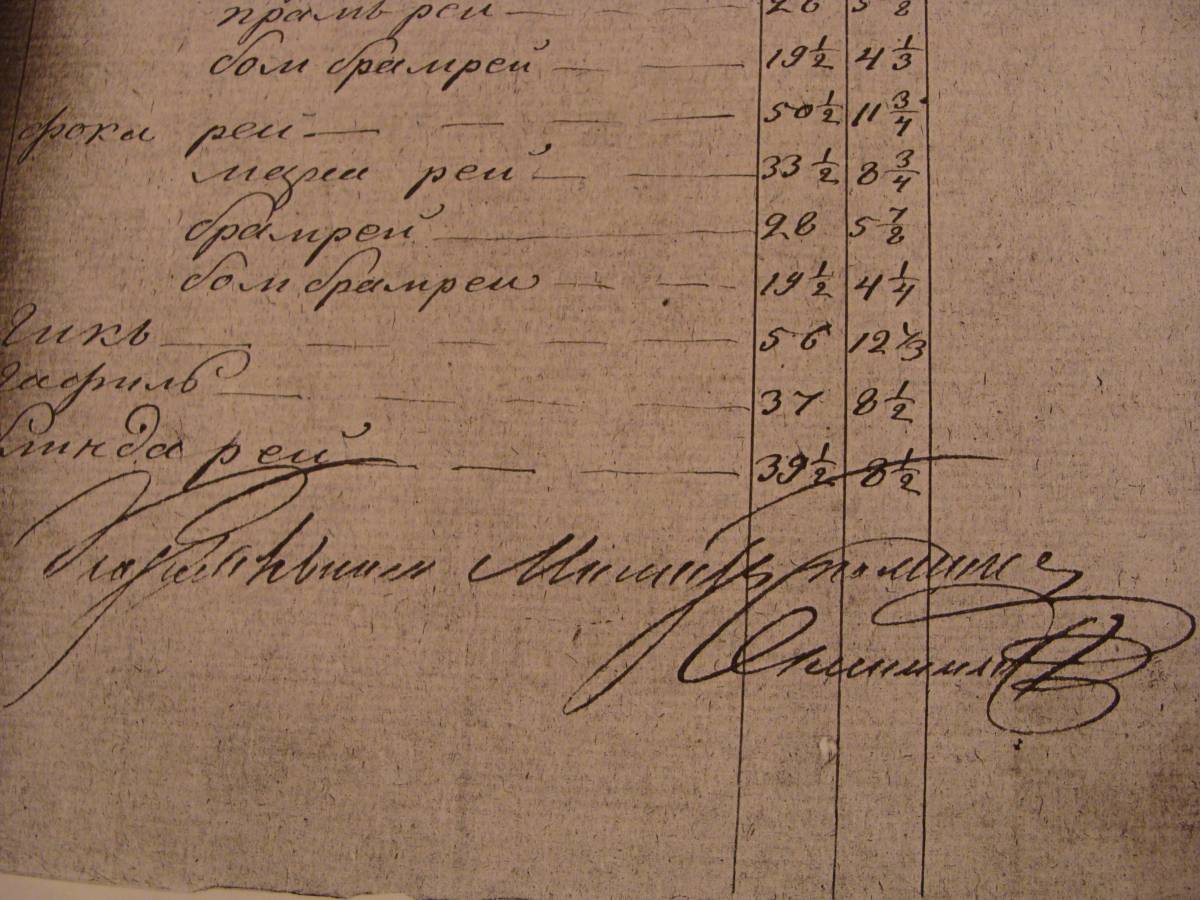 брамъ рей 28 5 7/8
бом брамрей 19 1/2 4 1/3
фока рей 50 1/2 11 3/4
марса рей 33 1/2 8 3/4
брамрей 28 5 7/8
бом брамрей 19 1/2 4 1/4
Гикъ 56 12 1/3
Гафиль 37 8 1/2
блинда рей 39 1/2 8 1/2